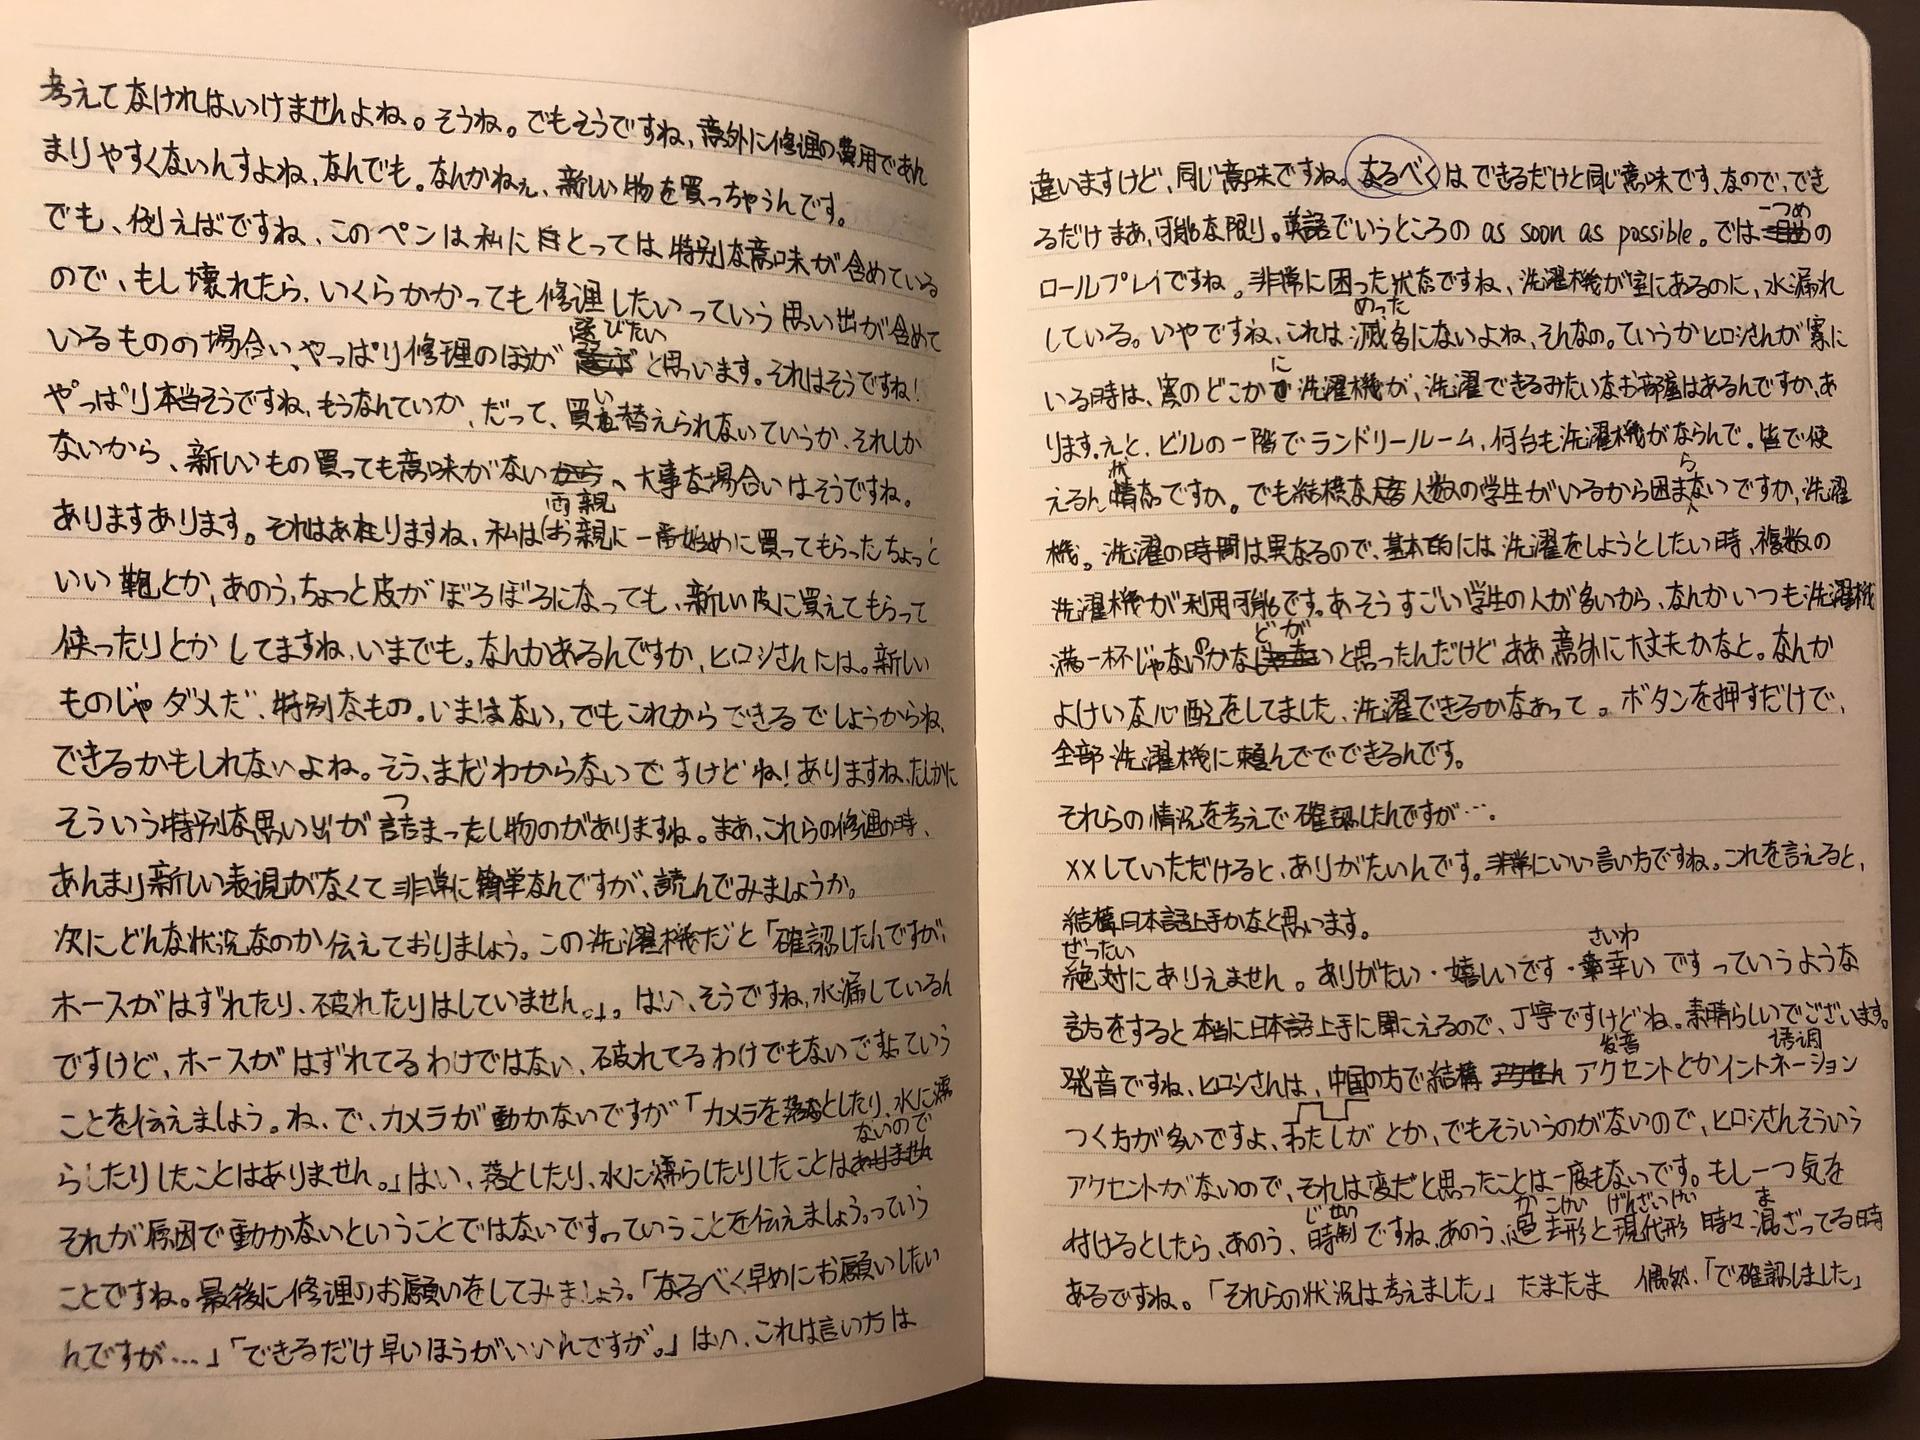 考えてなければいけませんよね。そうね。でもそうですね、意外に修理の費用であん
まりやすくないんすよね、なんでも。なんかねぇ、新しい物を買っちゃうんです。
でも、例えばですね、このペンは私にとっては特別な意味が含めている
ので、もし壊れたら、いくらかかっても修理したいっていう思い出が含めて
いるものの場合い、やっぱり修理のほが選びたいと思います。それはそうですね！
やっぱり本当そうですね、もうなんていか、だって、買い替えられないていうか、それしか
ないから、新しいもの買っても意味がない、大事な場合いはそうですね。
ありますあります。それはありますね、私は(お親に 両親 一番始めに買ってもらったちょっと
いい鞄とか、あのう、ちょっと皮がぼろぼろになっても、新しい皮に買えてもらって
使ったりとかしてますね、いまでも。なんかあるんですか、ヒロシさんには。新しい
ものじゃダメだ、特別なもの。いまはない、でもこれからできるでしょうからね、
できるかもしれないよね。そう、まだわからないですけどね！ありますね、たしかに
そういう特別な思い出が詰まったし物のがありますね。まあ、これらの修理の時、
つ
あんまり新しい表現がなくて非常に簡単なんですが、読んでみましょうか。
次にどんな状況なのか伝えておりましょう。この洗濯機だと「確認したんですが、
ホースがはずれたり、破れたりはしていません。」。はい、そうですね、水漏しているん
ですけど、ホースがはずれてるわけではない、破れてるわけでもないですよていう
ことを伝えましょう。ね、で、カメラが動かないですが「カメラを落としたり、水に濡
らしたりしたことはありません。」はい、落としたり、水に濡らしたりしたことはないので
それが原因で動かないということではないですっていうことを伝えましょう。っていう
ことですね。最後に修理のお願いをしてみましょう。「なるべく早めにお願いしたい
んですが...」「できるだけ早いほうがいいんですが。」はい、これは言い方は
違いますけど、同じ意味ですね。なるべくはできるだけと同じ意味です、なので、でき
るだけまあ、可能な限り。英語でいうところの as soon as possible。では一つめの
ロールプレイですね。非常に困った状态ですね、洗濯機が室にあるのに、水漏れ
している。いやですね、これは滅多にないよね、そんなの。ていうかヒロシさんが家に
めった
いる時は、家のどこかに洗濯機が、洗濯できるみたいなお部屋はあるんですか、あ
ります。えと、ビルの一階でランドリールーム、何台も洗濯機がならんで。皆で使
えるん状态ですか。でも結構な人数の学生がいるから困らないですか、洗濯
機。洗濯の時間は異なるので、基本的には洗濯をしようとしたい時、複数の
洗濯機が利用可能です。あそうすごい学生の人が多いから、なんかいつも洗濯機
満一杯じゃないのかなどがと思ったんだけど、ああ意外に大丈夫かなと。なんか
よけいな心配をしてました、洗濯できるかなあって。ボタンを押すだけで、
全部洗濯機に頼んででできるんです。
それらの情況を考えで確認したんですが…。
××していただけると、ありがたいんです。非常にいい言い方ですね。これを言えると、
結構日本語上手かなと思います。
ぜったい
絶対にありえません。ありがたい・嬉しいです・幸いですっていうような
さいわ
言方をすると本当に日本語上手に聞こえるので、丁寧ですけどね。素晴らしいでございます。
発音ですね、ヒロシさんは、中国の方で結構 アクセントとかイントネーション
发音 语调
つく方が多いですよ、わたしがとか、でもそういうのがないので、ヒロシさんそういう
アクセントがないので、それは変だと思ったことは一度もないです。もし一つ気を
付けるとしたら、あのう、時制ですね、あのう、過去形と現代形 時々混ざってる時
じせい かこけい げんざいけい ま
あるですね。「それらの状況は考えました」 たまたま 偶然、「で確認しました」